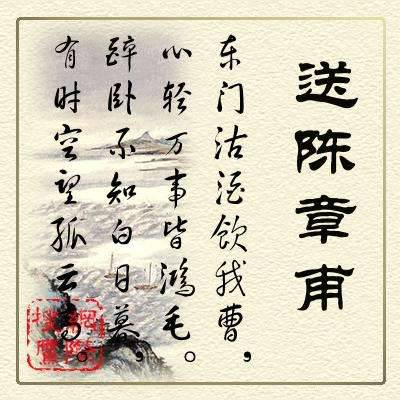 送陈章甫
东门沽酒饮我曹，
心轻万事皆鸿毛。
醉卧不知白日暮，
有时空望孤云高。